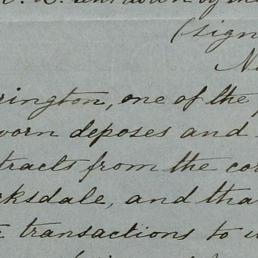 (sign
rington, one of the
worn deposes and
tracts from the cor
rksdale, and tha
transactions to w